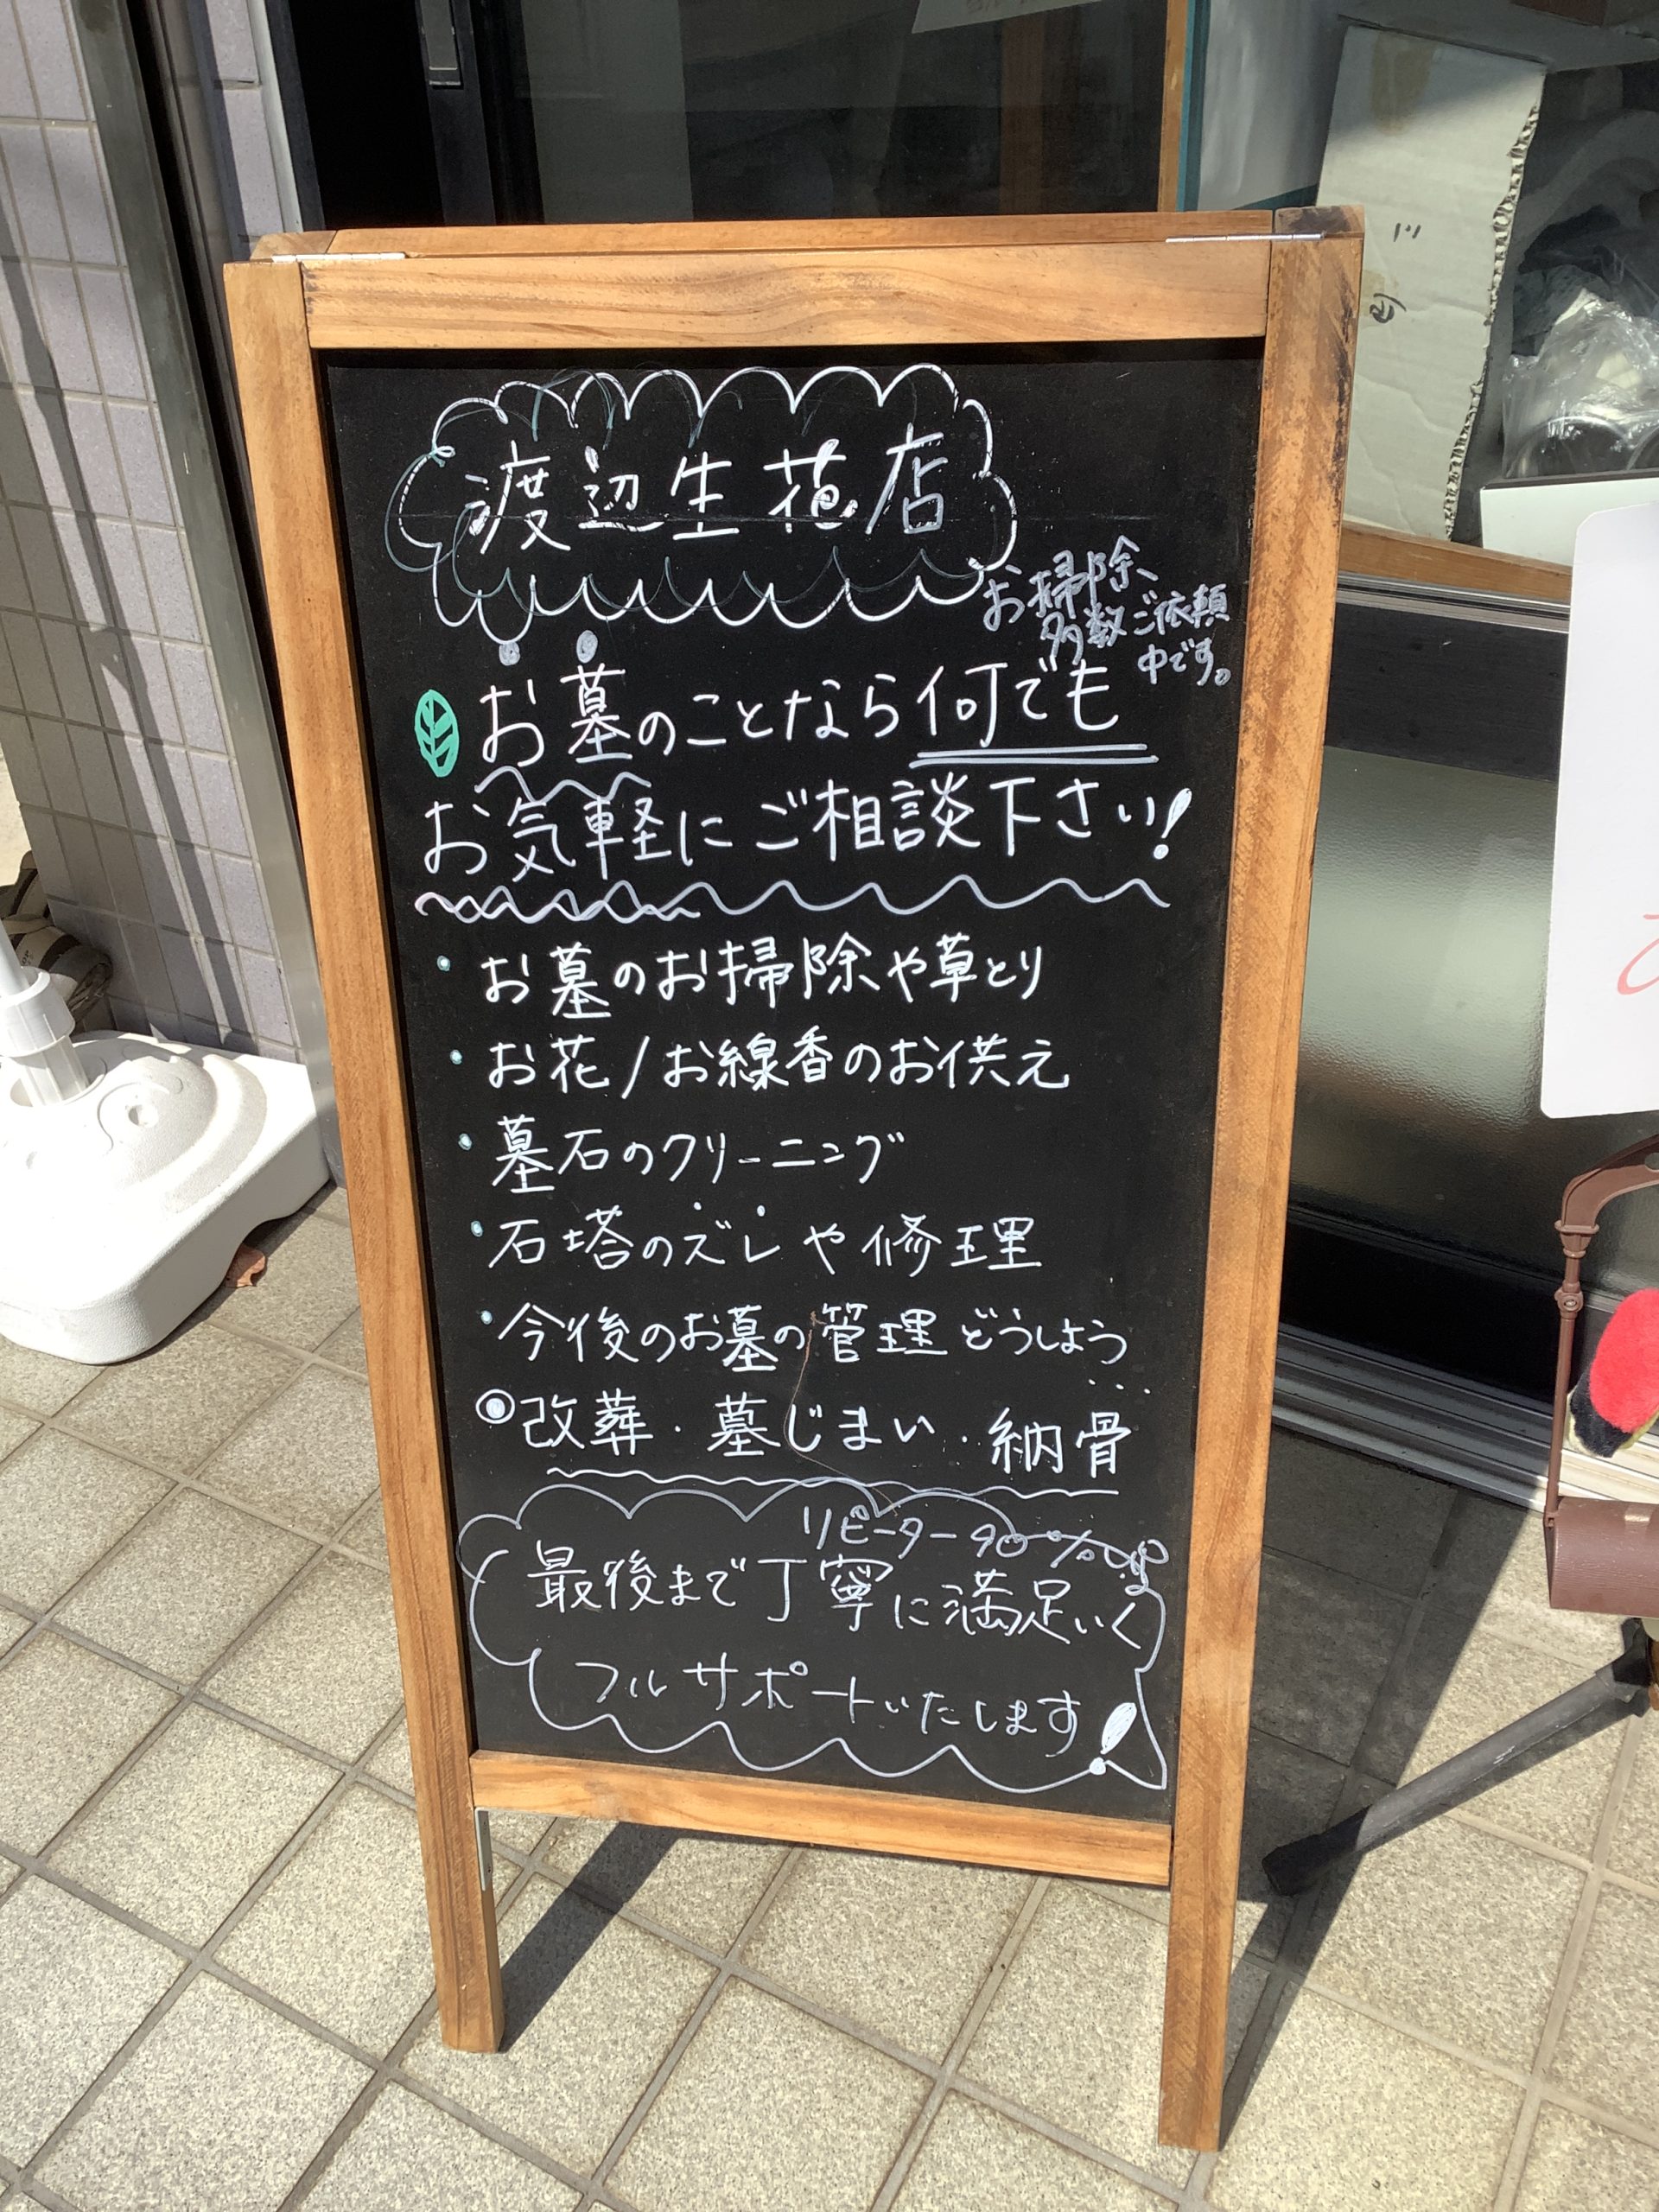 渡辺生花店
お掃除
多数ご依頼
中です。
お墓のことなら何でも
お気軽にご相談下さい!
・お墓のお掃除や草とり
・お花/お線香のお供え
・墓石のクリーニング
・石塔のズレや修理
・今後のお墓の管理どうしよう…
◎改葬・墓じまい・納骨
リピーター90%
最後まで丁寧に満足いく
フルサポートいたします!